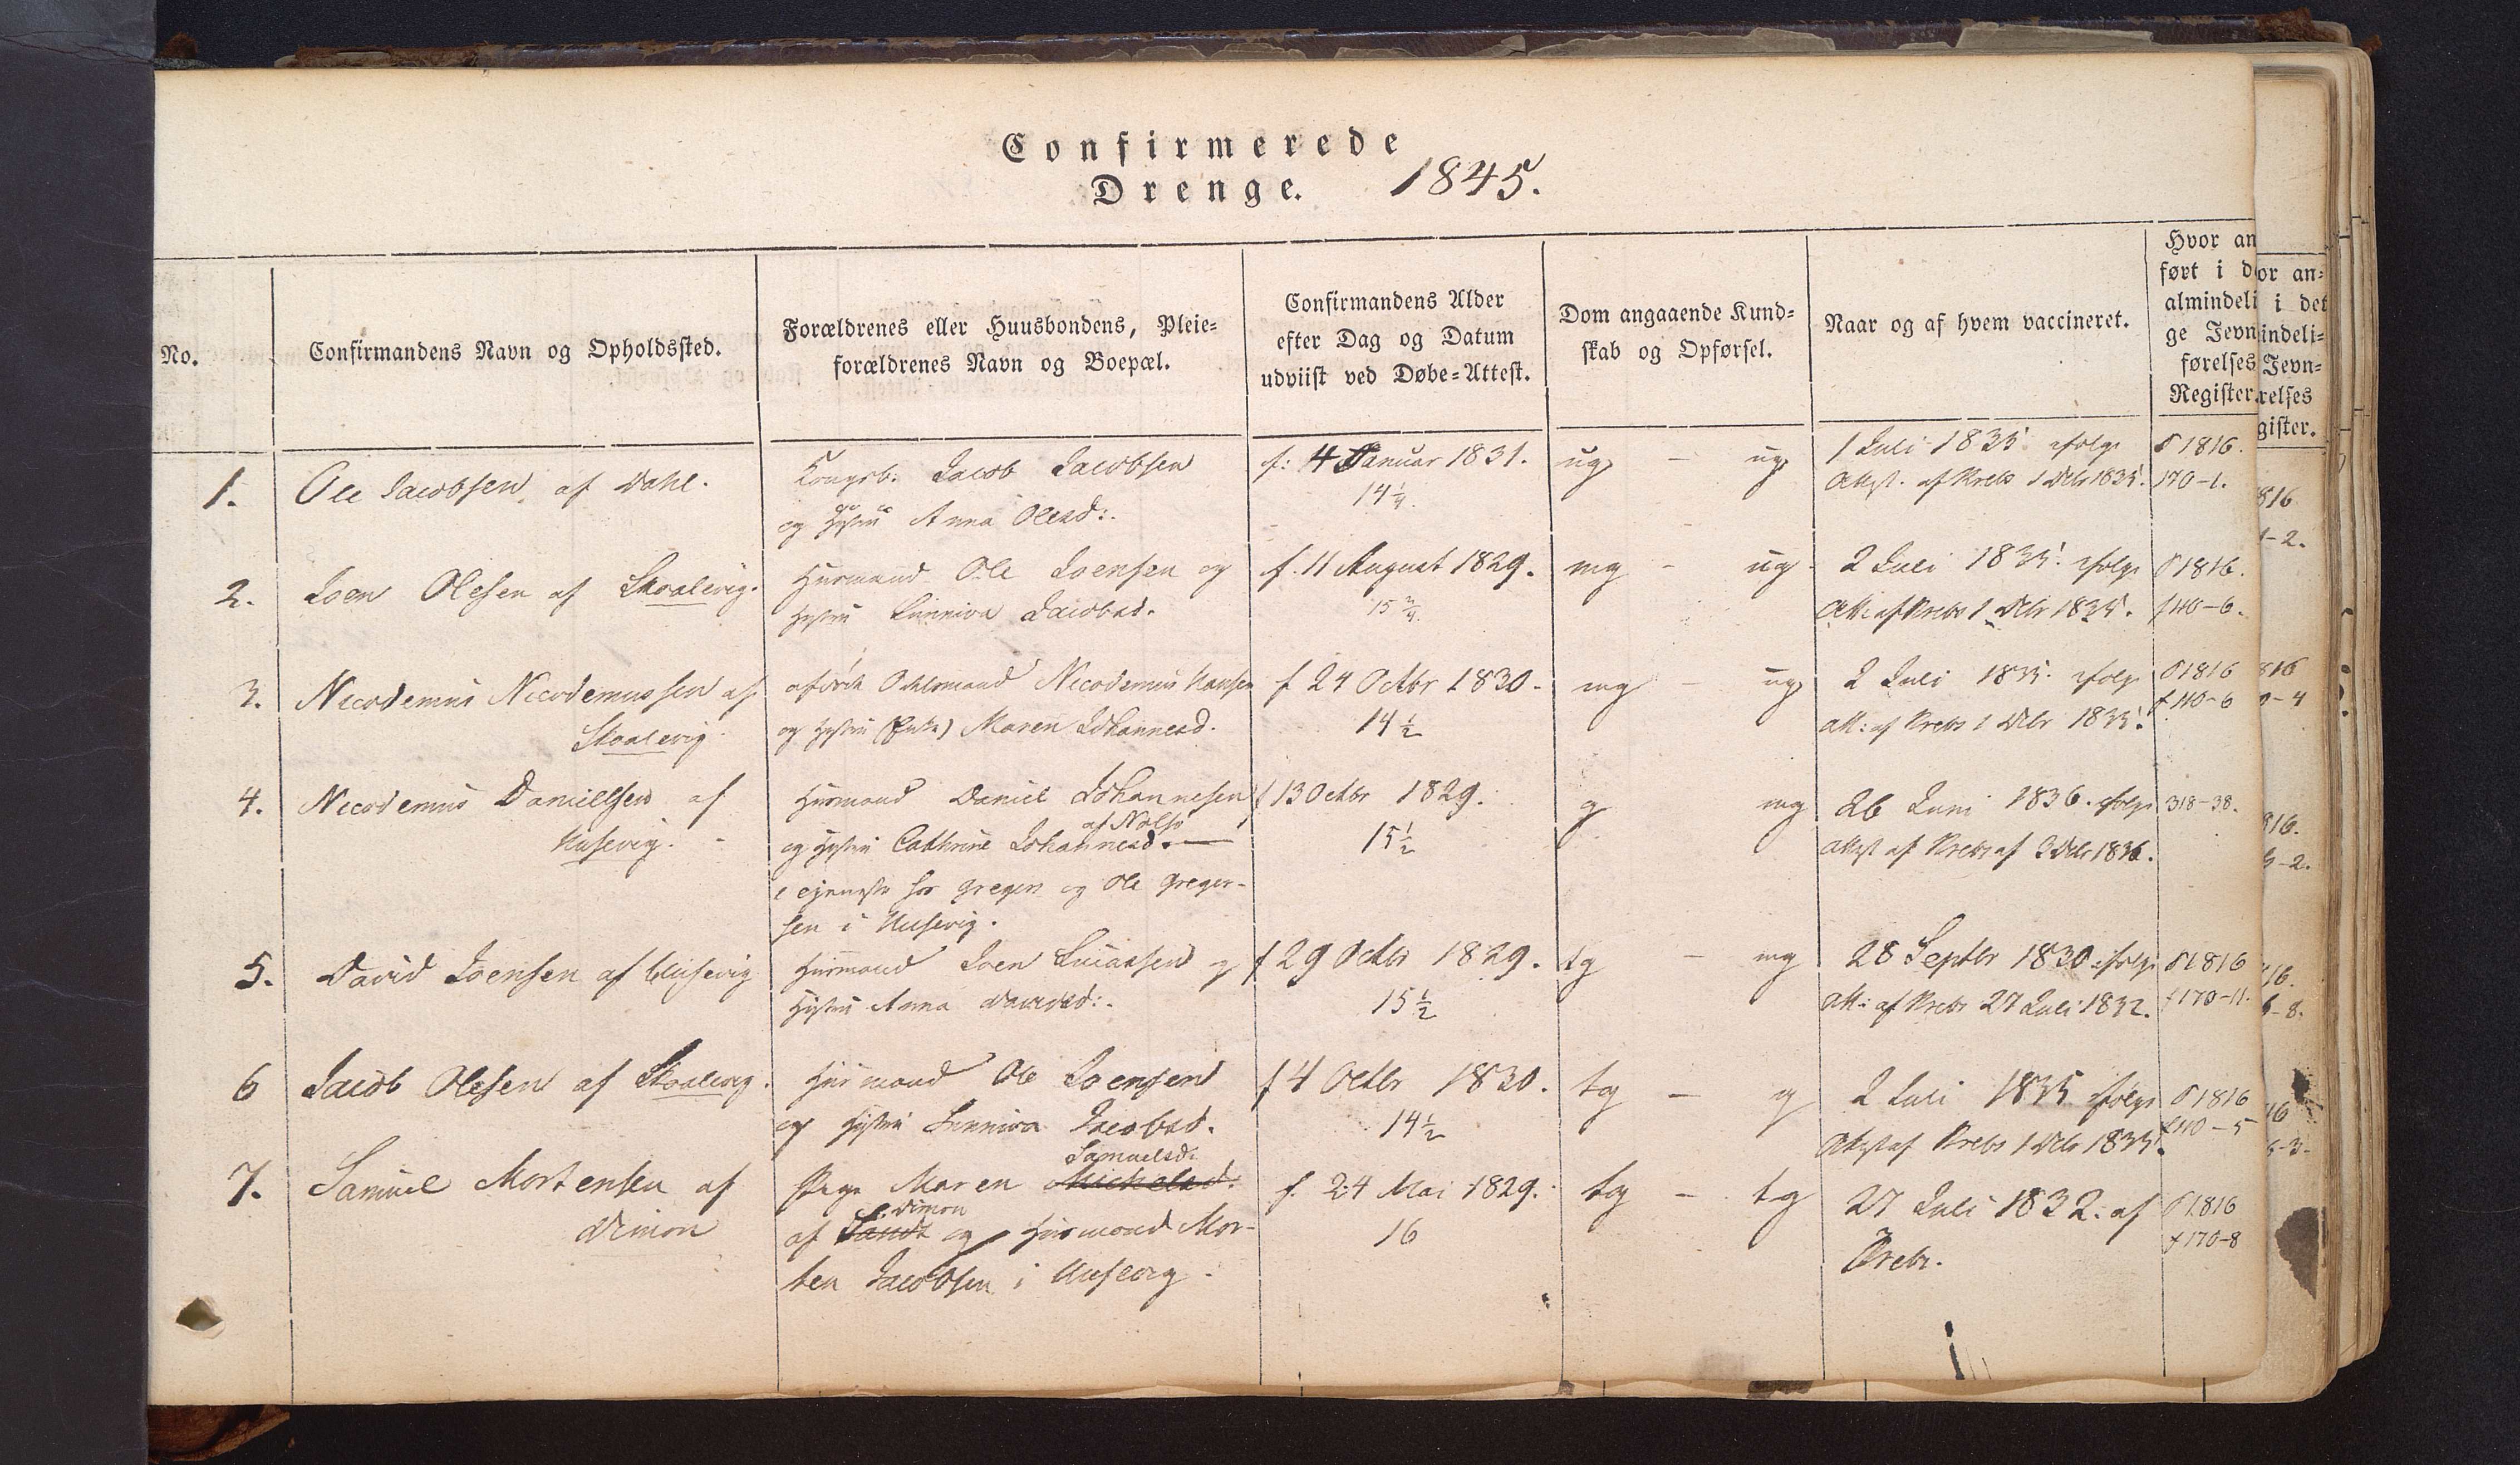 Confirmerede
Drenge. 1845.
No.
Confirmandens Navn og Opholdssted.
Forældrenes eller Huusbondens, Pleie-
forældrenes Navn og Boepæl.
Confirmandens Alder
efter Dag og Datum
udviist ved Døbe-Attest.
Dom angaaende Kund-
skab og Opførsel.
Naar og af hvem vaccineret.
Hvor an
ført i d
almindeli
ge Jevn
førelses
Register.
or an-
i det
indeli-
Jevn-
relses
gister.
1.
Ole Jacobsen af Dahl.
Kongsb. Jacob Jacobsen
og Hustru Anna Olesd:.
f: 4 Januar 1831.
14 1/4.
ug - ug
1 Juli 1835 ifølge
Attest. af Krebs 1 Decbr 1835.
O 1816.
170-1.
2.
Joen Olesen af Skaalevig.
Huusmand Ole Joensen og
Hustru Sunniva Jacobsd.
f. 11 August 1829.
15 3/4.
mg - ug
2 Juli 1835. ifølge
Att: af Krebs 1 Decbr 1835.
O 1816.
f 140-6.
3.
Nicodemus Nicodemussen af
Skaalevig.
afdøde Odelsmand Nicodemus Hansen
og Hustru (Enke) Maren Johannesd.
f 24 Octbr 1830.
14 1/2
mg - ug
2 Juli 1835. ifølge
Att: af Krebs 1 Decbr 1835.
O 1816
f 140-6
4.
Nicodemus Daniellsen af
Husevig.
Huusmand Daniel Johannesen
af Nolsø
og Hustru Cathrine Johannesd.
i tjeneste hos Gregers og Ole Greger-
sen i Husevig.
f 13 Octbr 1829.
15 1/2
g mg
26 Juni 1836. ifølge
Attest af Krebs af 3 Decbr 1836.
318-38.
5.
David Joensen af Husevig
Huusmand Joen Lucassen og
Hustru Anna Davidsd:.
f 29 Octbr 1829.
15 1/2
tg - mg
28 Septbr 1830 ifølge
Att: af Krebs 27 Juli 1832.
O 1816
f 170-11.
6
Jacob Olesen af Skaalevig.
Huusmand Ole Joensen
og Hustru Sunniva Jacobsd.
f 4 Octbr 1830.
14 1/2
tg - g
2 Juli 1835 ifølge
Attest af Krebs 1 Decbr 1835.
O 1816
f 140-5
7.
Samuel Mortensen af
Dimon
Samuelsd.
Pige Maren Michelsd.
Dimon
af Sandt og Huusmand Mor-
ten Jacobsen i Husevig.
f. 24 Mai 1829.
16
tg - tg
27 Juli 1832. af
Krebs.
O 1816
f 170-8